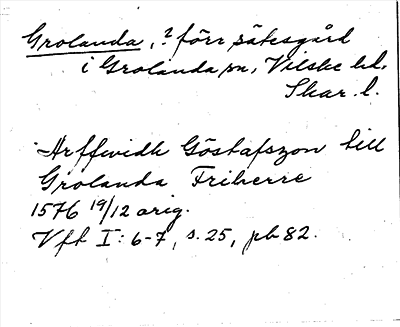 Grolanda, ? förr sätesgård
i Grolanda sn, Vilske hd.
Skar. l.
Arffwidh Göstafszon till
Grolanda Friherre
1576 19/12 orig.
Vft I: 6-7, s. 25, pl 82.